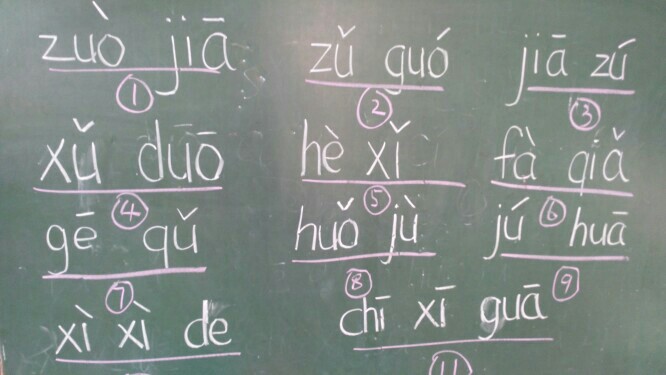 zuò jiā zǔ guó jiā zú
① ② ③
xǔ duō hè xǐ fà qiǎ
④ ⑤ ⑥
gē qǔ huǒ jù jú huā
⑦ ⑧ ⑨
xì xì de chī xī guā
⑪